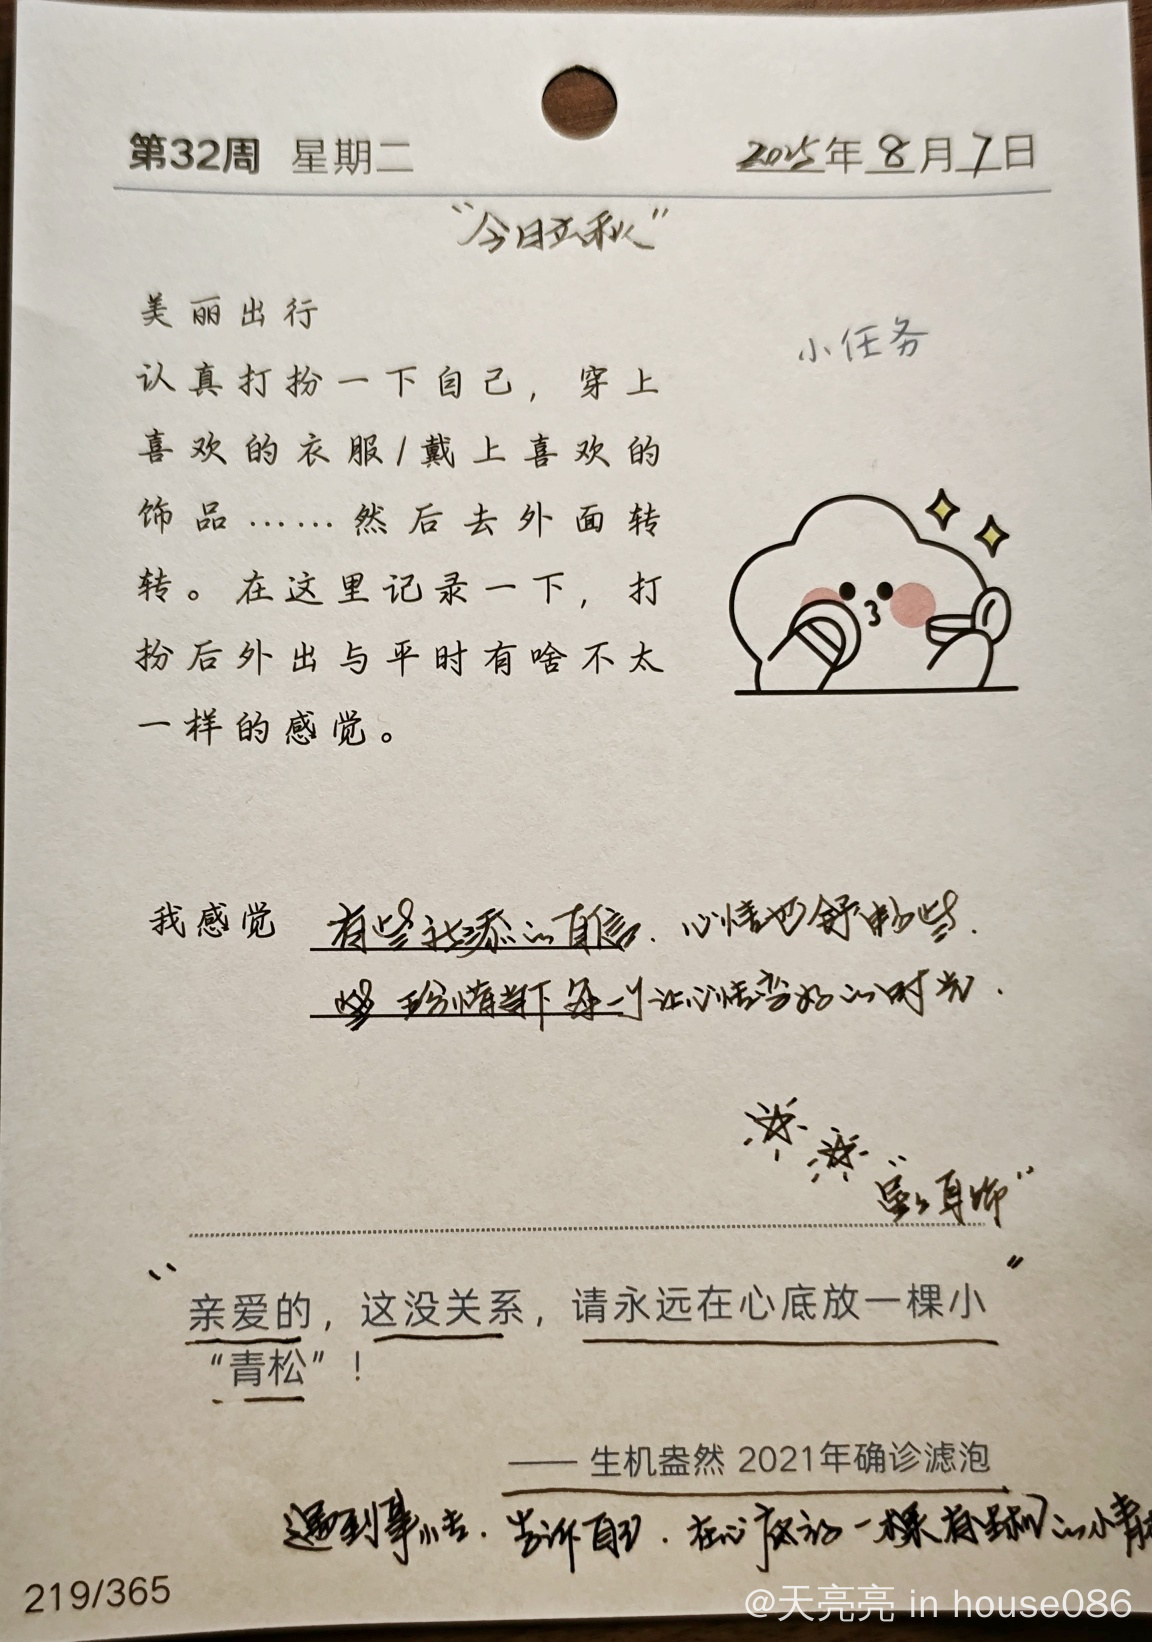 第32周 星期二 2025年8月7日
“今日立秋”
美丽出行
小任务
认真打扮一下自己，穿上
喜欢的衣服/戴上喜欢的
饰品……然后去外面转
转。在这里记录一下，打
扮后外出与平时有啥不太
一样的感觉。
我感觉 有些我添的自信.心情也舒畅些.
珍惜当下每一个让心情变好的时光.
“ 耳饰”
“亲爱的，这没关系，请永远在心底放一棵小”
“青松”！
—— 生机盎然 2021年确诊滤泡
遇到事小去.告诉自己.在心底放一棵有生机的小青松
219/365
@天亮亮 in house086